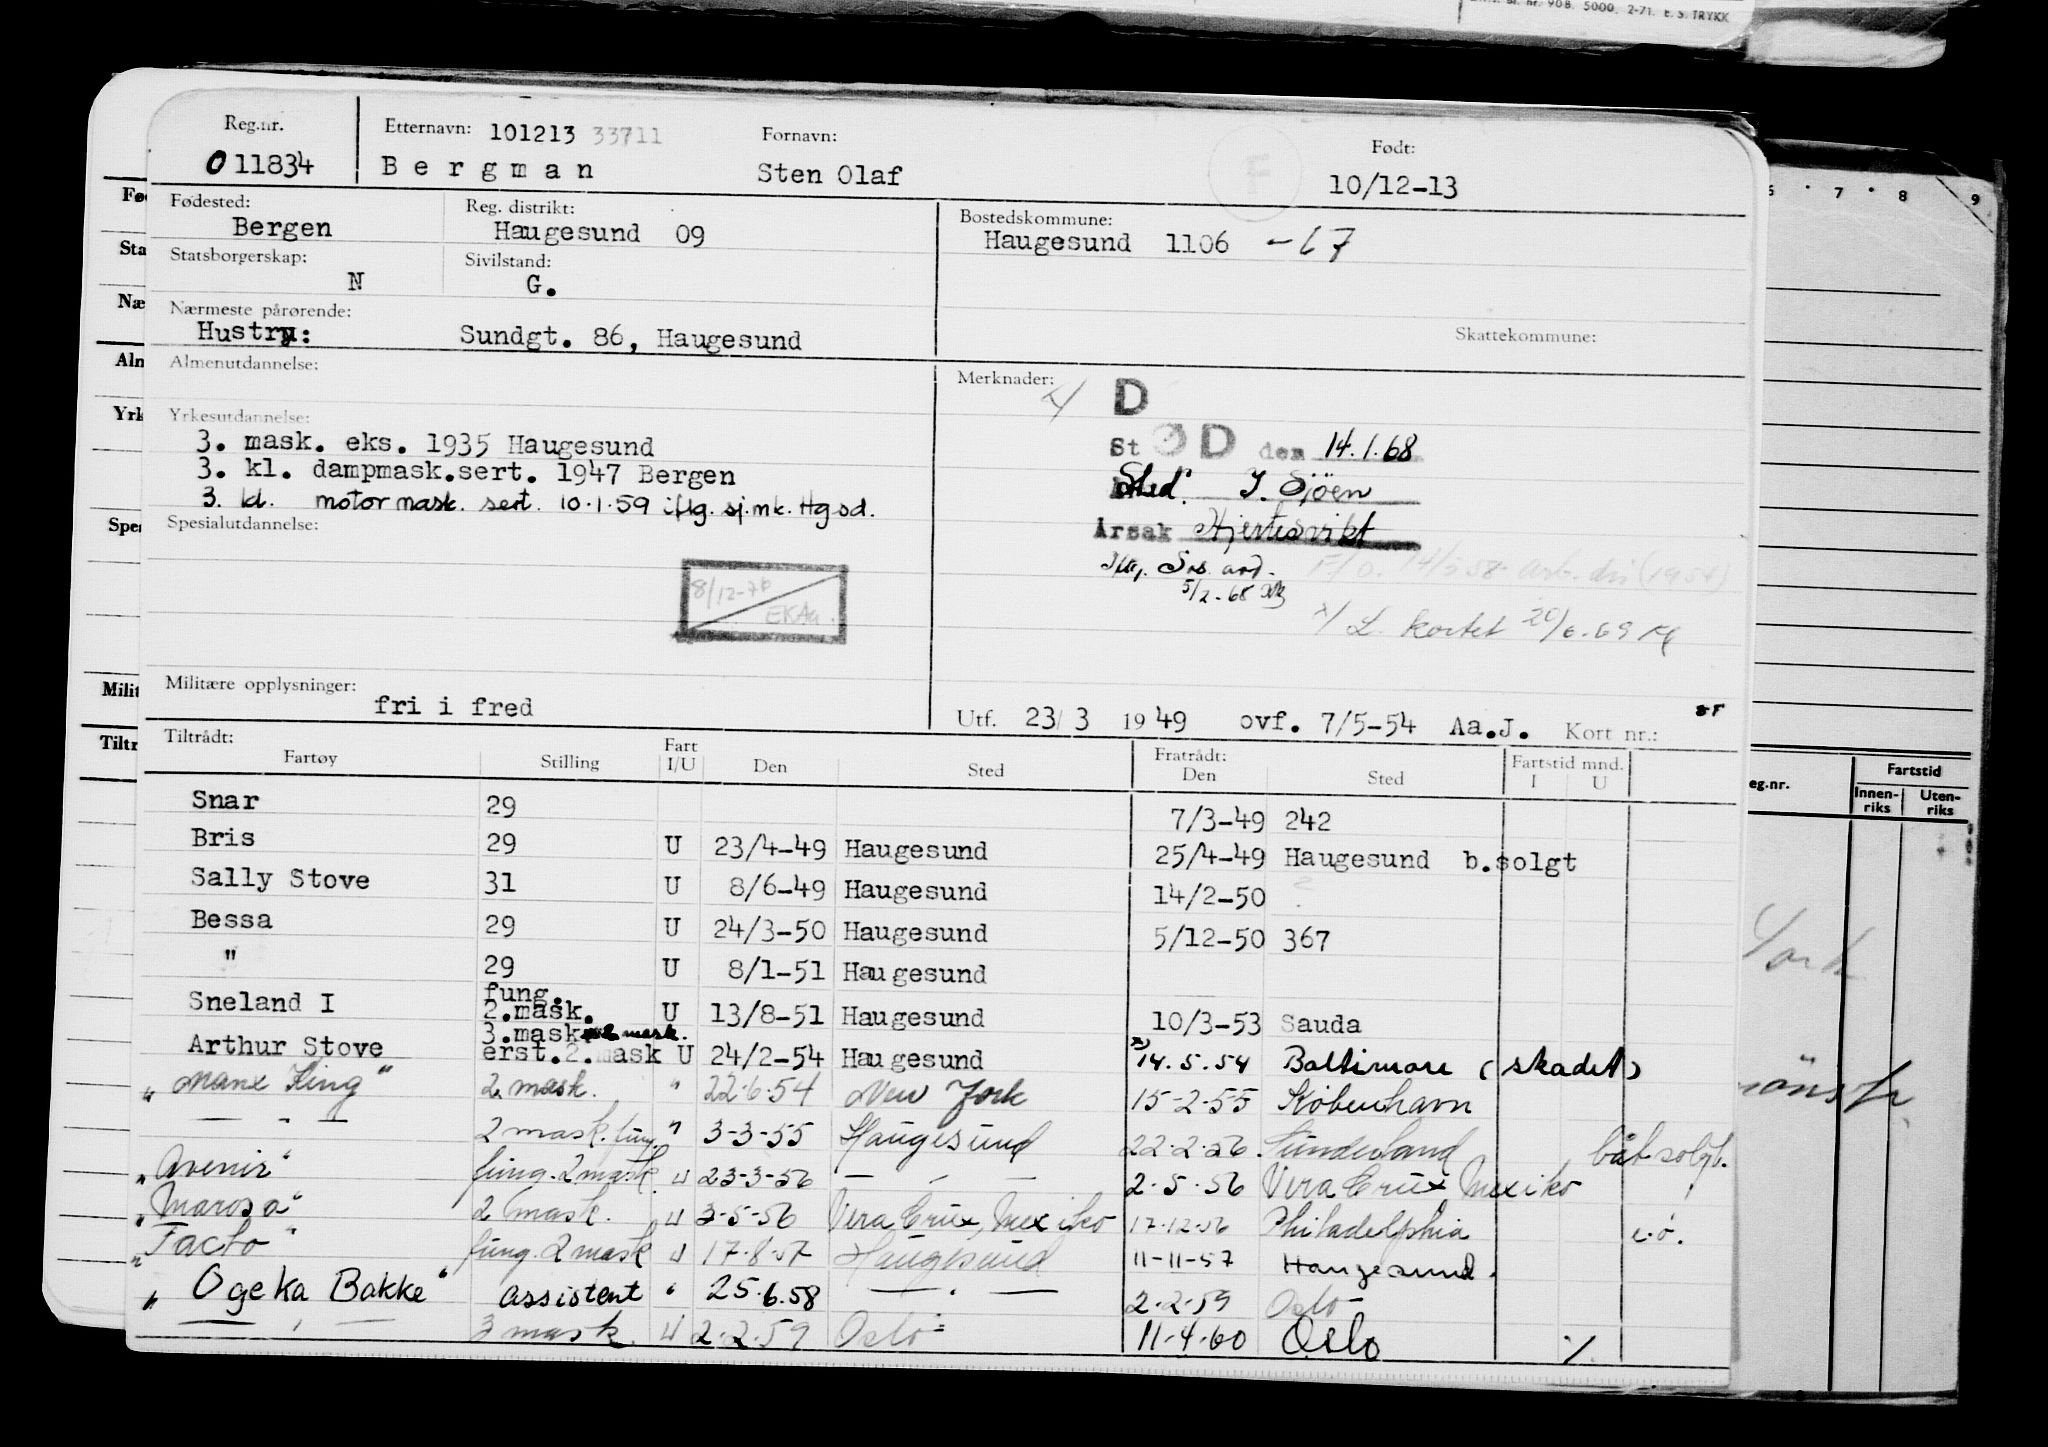 nr. 908. 5000. 2-71. E. S. TRYKK
Reg.nr. Etternavn: 101213 33711 Fornavn: Født:
011834 Bergman Sten Olaf F 10/12-13
Fødested: Reg. distrikt: Bostedskommune:
Bergen Haugesund 09 Haugesund 1106 -67
Statsborgerskap: Sivilstand:
N G.
Nærmeste pårørende:
Hustru: Sundgt. 86, Haugesund Skattekommune:
Almenutdannelse: Merknader: x/ D
Yrkesutdannelse:
3. mask. eks. 1935 Haugesund StØD den 14.1.68
3. kl. dampmask.sert. 1947 Bergen Sted: I. Sjöen
3. kl. motormask. sert. 10.1.59 iflg. sj.mk. Hgsd. Årsak Hjertesvikt
Spesialutdannelse: Iflg.
5/2-68
8/12-70
x/ L. kortet 20/6-69
Militære opplysninger:
fri i fred Utf. 23/3 1949 ovf. 7/5-54 Aa.J. Kort nr.:
Tiltrådt: Fart Fratrådt: Fartstid mnd.
Fartøy Stilling I/U Den Sted Den Sted I U
Snar 29 7/3-49 242
Bris 29 U 23/4-49 Haugesund 25/4-49 Haugesund b.solgt
Sally Stove 31 U 8/6-49 Haugesund 14/2-50
Bessa 29 U 24/3-50 Haugesund 5/12-50 367
" 29 U 8/1-51 Haugesund
fung.
Sneland I 2.mask. U 13/8-51 Haugesund 10/3-53 Sauda
3.mask mask.
Arthur Stove erst.2.mask U 24/2-54 Haugesund x) 14.5.54 Baltimore (skadet)
"Manx King" 2 mask. " 22.6.54 New York 15-2-55 København
— " — 2 mask. fung. " 3-3-55 Haugesund 22.2.56 Sunderland båt solgt.
"Avenir" fung. 2 mask. U 23-3-56 — " — 2.5.56 Vera Crux Mexiko
"Marosa" 2 mask. U 3-5-56 Vera Crux, Mexiko 17.12.56 Philadelphia e.ø.
"Facto" fung. 2 mask U 17.8.57 Haugesund 11-11-57 Haugesund.
"Ogeka Bakke" assistent " 25.6.58 — " — 2.2.59 Oslo
— " — 3 mask. U 2.2.59 Oslo 11.4.60 Oslo
Fø
Sta
Næ
Aln
Yrk
Spe
Milit
Tiltr
7 8 9
eg.nr. Fartstid
Innen-
riks Uten-
riks
York